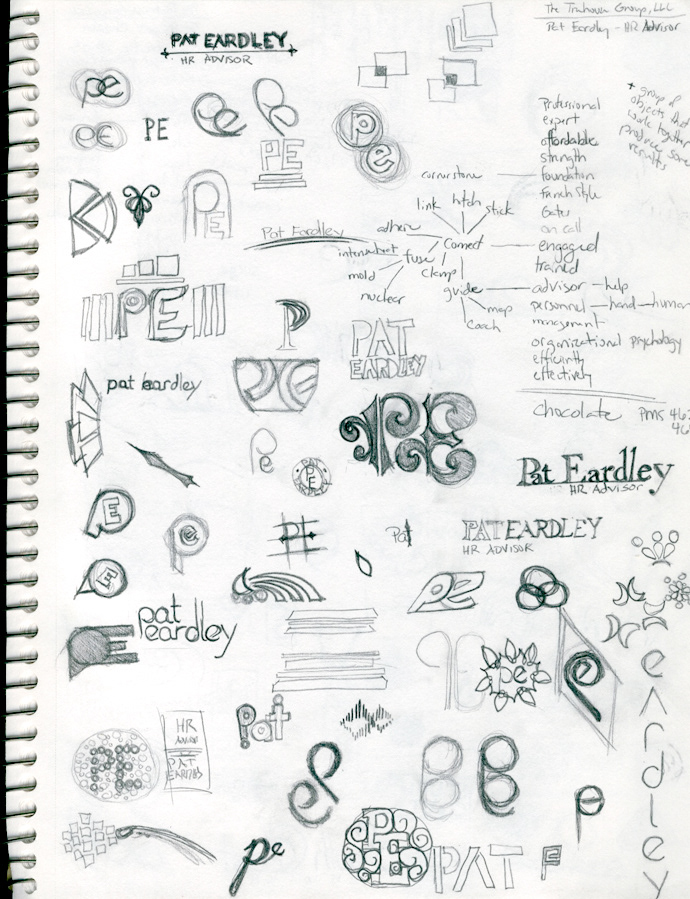 PAT EARDLEY
HR ADVISOR
The Trahouse Group, LLC
Pat Eardley - HR Advisor
pe
PE
PE
Pe
Pe
PE
P
e
PE
* group of
objects that
work together
produce same
results
Professional
expert
affordable
strength
cornerstone
foundation
French Style
Gates
on call
engaged
trained
advisor - help
personnel - hand - human
management
organizational psychology
efficiently
effectively
chocolate PMS 462
link
hitch
stick
adhere
Connect
fuse
mold
nuclear
clamp
guide
map
coach
Pat Eardley
PE
P
PAT
EARDLEY
pat eardley
PE
Pe
PE
Pat Eardley
HR Advisor
E
Pe
PE
Pat
PAT EARDLEY
HR ADVISOR
E
pe
pat
eardley
pe
e
eardley
HR
ADVISOR
PAT
EARDLEY
PE
Pat
P
Pe
PE
PAT